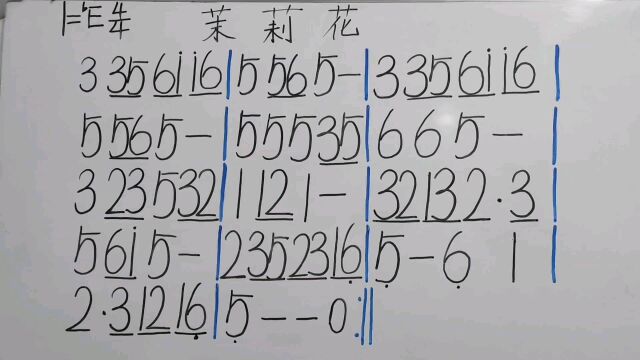 1=♭E 4/4 茉莉花
3 35 61 16 | 5 56 5 – | 3 35 61 16 |
5 56 5 – | 5 5 5 35 | 6 6 5 – |
3 23 5 32 | 1 12 1 – | 32 132 2 · 3 |
5 61 5 – | 2 35 23 16 | 5 – 6 1 |
2 · 3 12 16 | 5 – – 0 :||